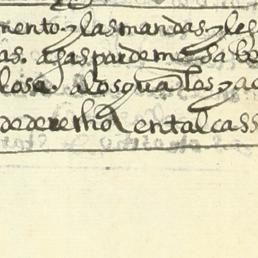 mento y las mandas y le
as. a gaspar de mesa be
losa. a los quales y a c
de derecho en tal cass